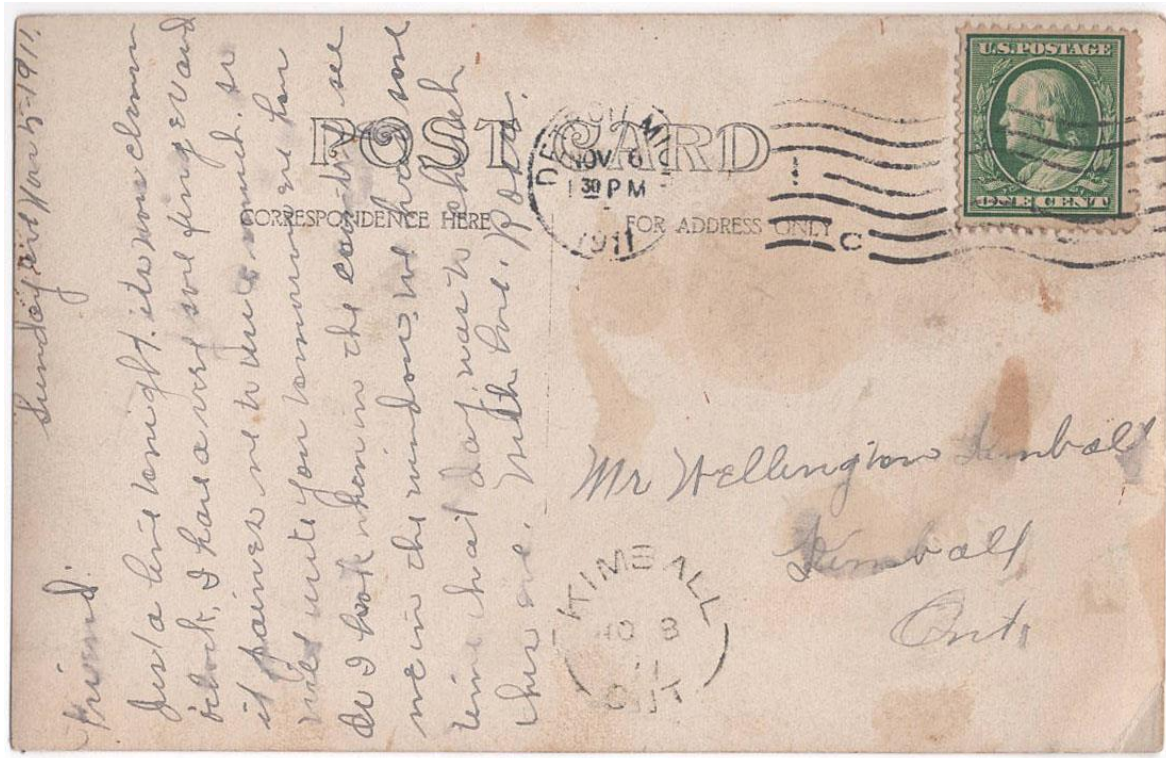 Sunday eve Nov 5-1911.
Friend:
Just a line tonight. its now eleven
oclock, I have a very sore finger and
it paines me to use so much. so
will write you tomorrow eve. how
do I look when in the can't see
me in the window, we had some
time that day. was to church
this eve. With love. Rota.
POST CARD
CORRESPONDENCE HERE
FOR ADDRESS ONLY
DET MICH
NOV 6
1 30 PM
1911
U.S. POSTAGE
ONE CENT
C
Mr Wellington Kimball
Kimball
Ont.
KIMBALL
NO 8
11
ONT